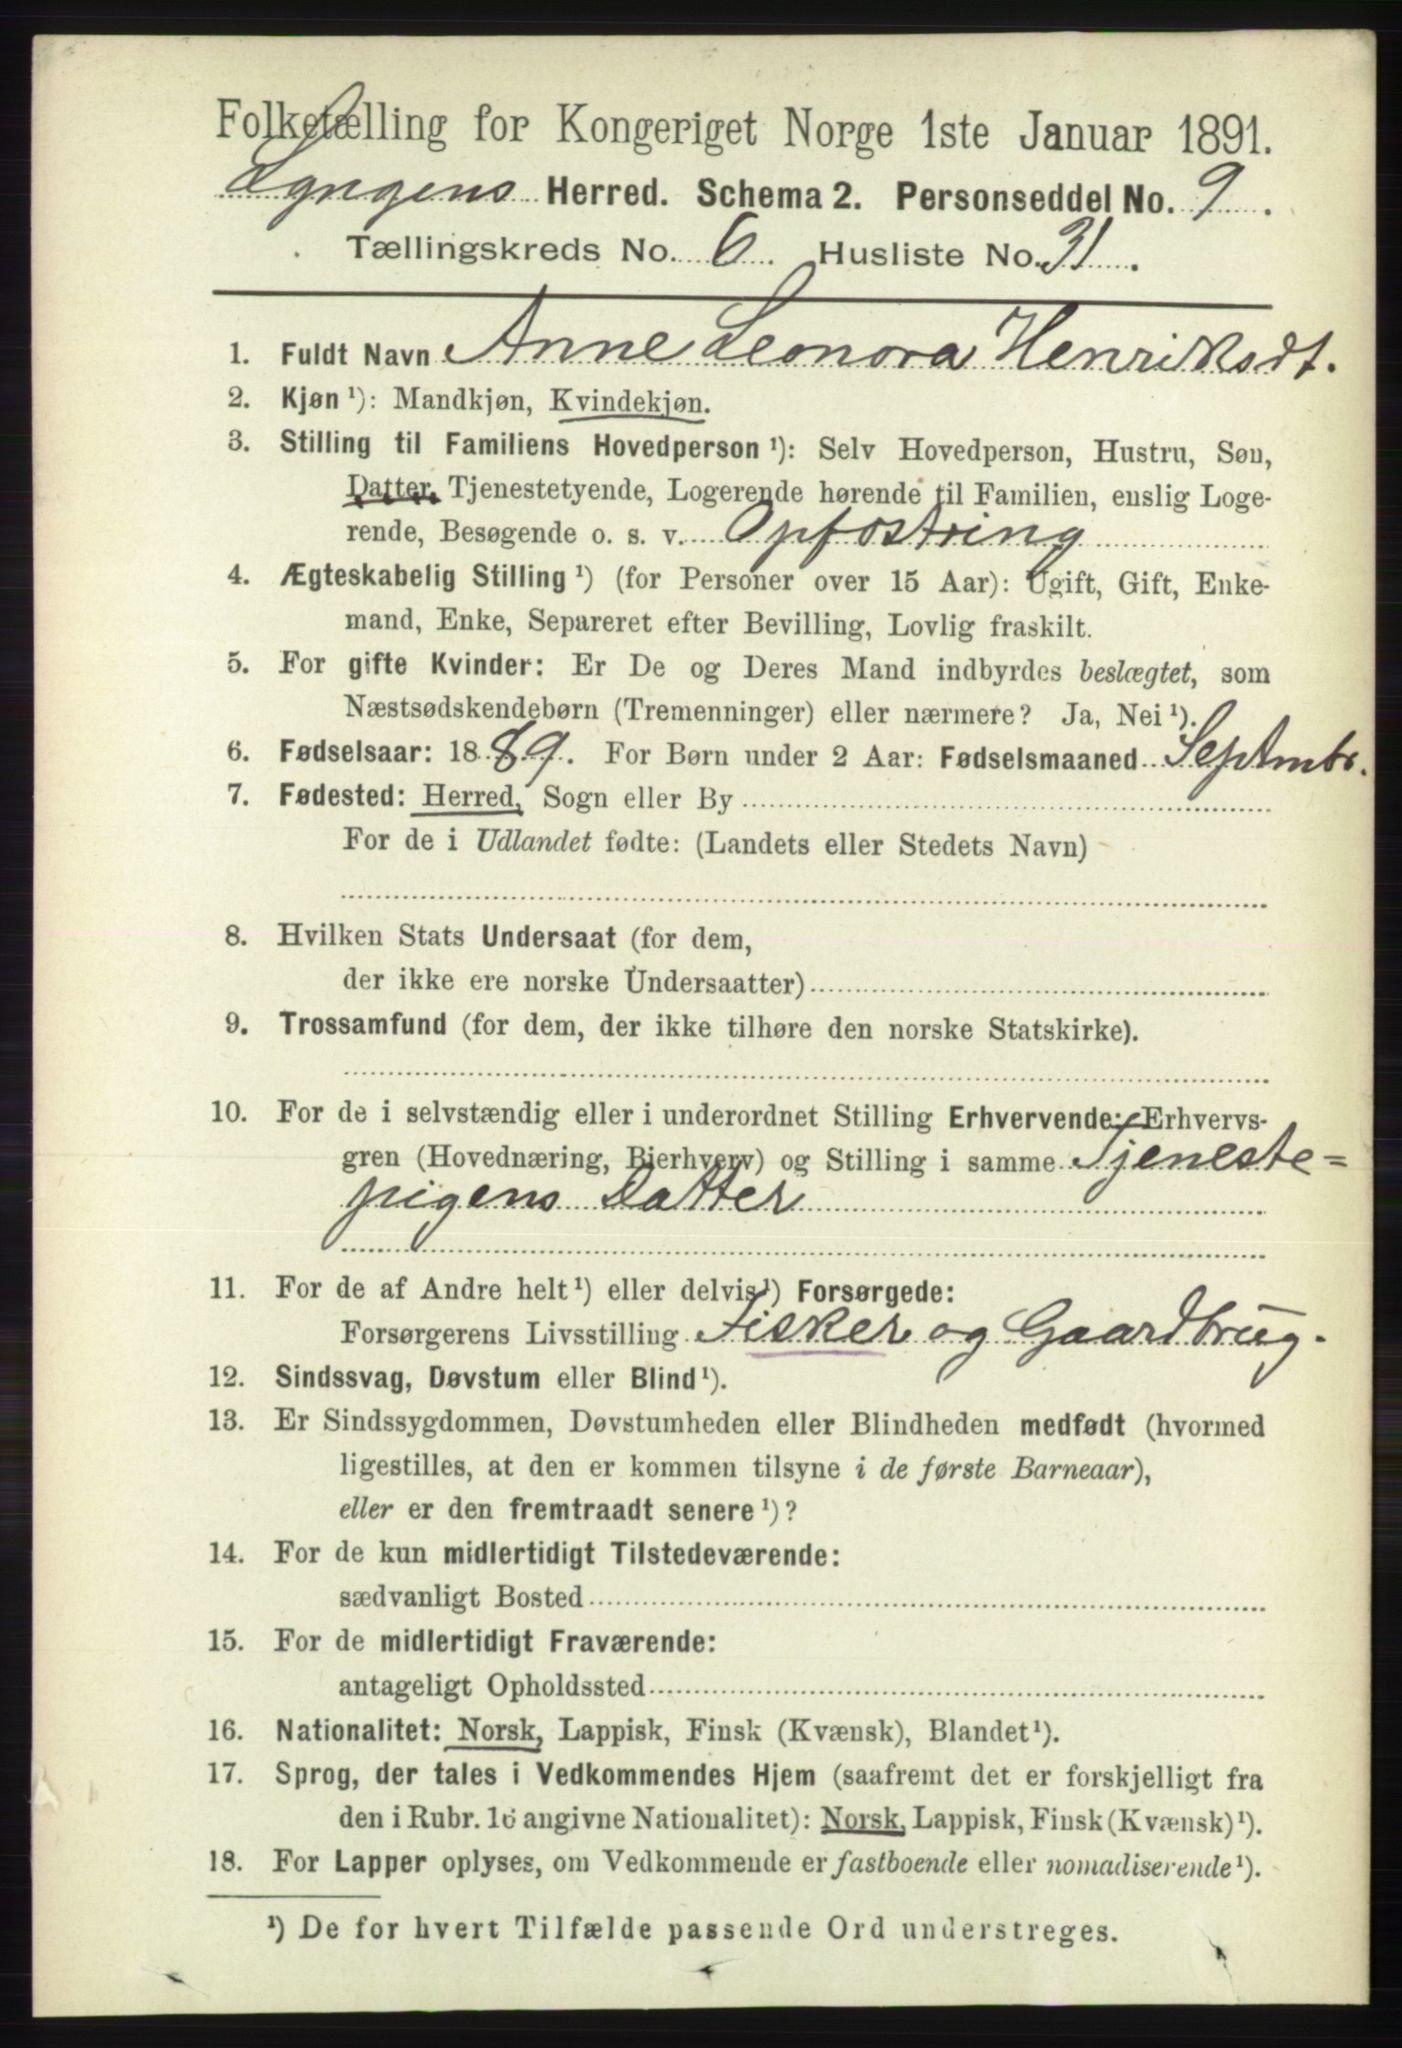 Folketælling for Kongeriget Norge 1ste Januar 1891.
Lyngens Herred. Schema 2. Personseddel No. 9.
Tællingskreds No. 6. Husliste No. 31.
1. Fuldt Navn Anne Leonora Henriksdt.
2. Kjøn ¹): Mandkjøn, Kvindekjøn.
3. Stilling til Familiens Hovedperson ¹): Selv Hovedperson, Hustru, Søn,
Datter, Tjenestetyende, Logerende hørende til Familien, enslig Loge-
rende, Besøgende o. s. v. Opfostring
4. Ægteskabelig Stilling ¹) (for Personer over 15 Aar): Ugift, Gift, Enke-
mand, Enke, Separeret efter Bevilling, Lovlig fraskilt.
5. For gifte Kvinder: Er De og Deres Mand indbyrdes beslægtet, som
Næstsødskendebørn (Tremenninger) eller nærmere? Ja, Nei ¹).
6. Fødselsaar: 1889. For Børn under 2 Aar: Fødselsmaaned Septmbr.
7. Fødested: Herred, Sogn eller By
For de i Udlandet fødte: (Landets eller Stedets Navn)
8. Hvilken Stats Undersaat (for dem,
der ikke ere norske Undersaatter)
9. Trossamfund (for dem, der ikke tilhøre den norske Statskirke).
10. For de i selvstændig eller i underordnet Stilling Erhvervende: Erhvervs-
gren (Hovednæring, Bierhverv) og Stilling i samme Tjeneste=
pigens Datter
11. For de af Andre helt ¹) eller delvis ¹) Forsørgede:
Forsørgerens Livsstilling Fisker og Gaardbrug.
12. Sindssvag, Døvstum eller Blind ¹).
13. Er Sindssygdommen, Døvstumheden eller Blindheden medfødt (hvormed
ligestilles, at den er kommen tilsyne i de første Barneaar),
eller er den fremtraadt senere ¹)?
14. For de kun midlertidigt Tilstedeværende:
sædvanligt Bosted
15. For de midlertidigt Fraværende:
antageligt Opholdssted
16. Nationalitet: Norsk, Lappisk, Finsk (Kvænsk), Blandet ¹).
17. Sprog, der tales i Vedkommendes Hjem (saafremt det er forskjelligt fra
den i Rubr. 16 angivne Nationalitet): Norsk, Lappisk, Finsk (Kvænsk) ¹).
18. For Lapper oplyses, om Vedkommende er fastboende eller nomadiserende ¹).
¹) De for hvert Tilfælde passende Ord understreges.